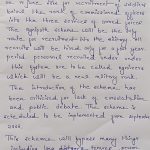 be a part. The for recruitment of soldiers
below the rank of commissioned officers
into the three services of armed forces.
The Agnipath scheme will be the only
route for recruitment into the military. All
recruits will be hired only for a four year
period. personnel recruited under under
this system are to be called agniveers
which will be a new military rank.
The introduction of the scheme has
been criticised for lack of consultation
and public debate. The scheme is
scheduled to be implemented for September
2022.
This scheme will bypass many things
including long tenures, pension